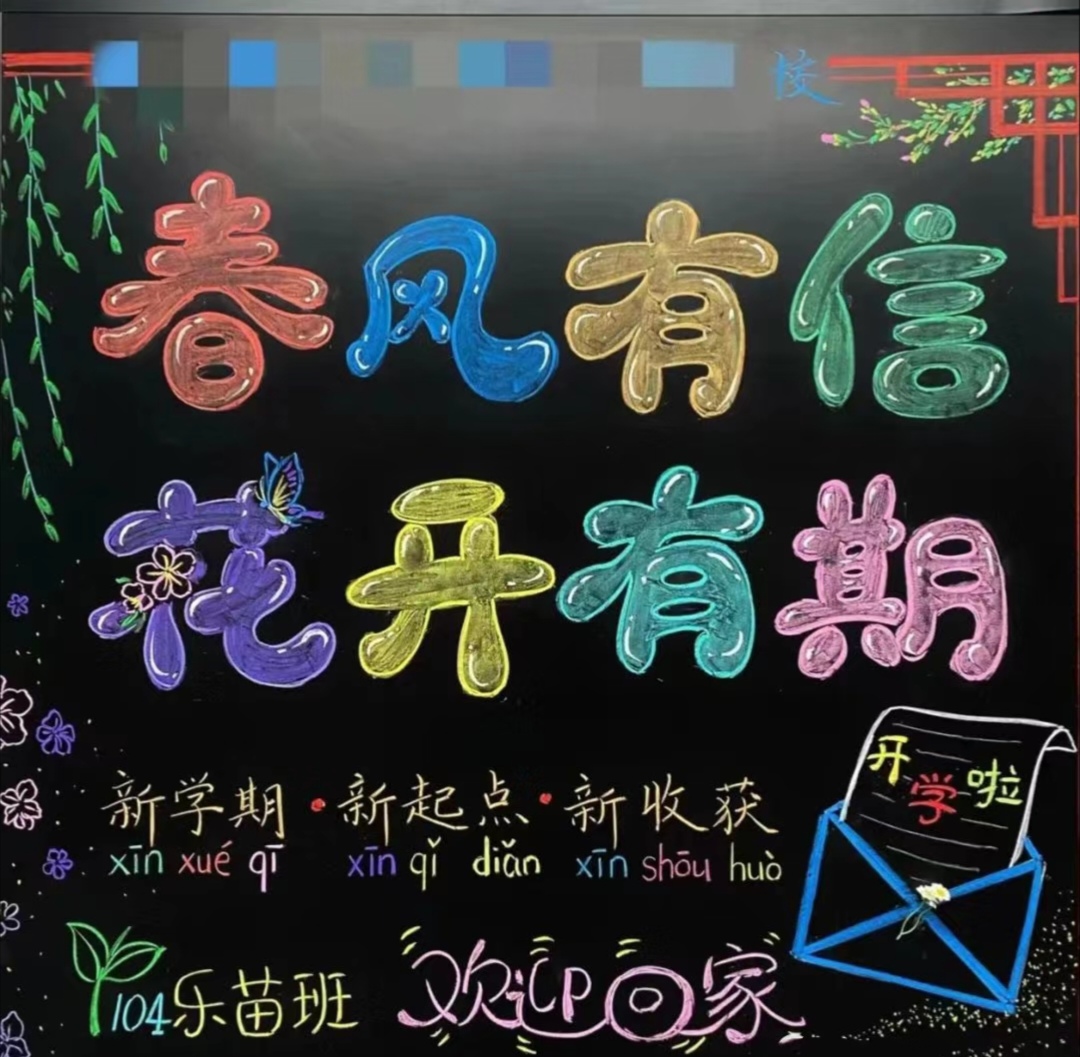 校
春风有信
花开有期
开学啦
新学期·新起点·新收获
xīn xué qī xīn qǐ diǎn xīn shōu huò
104乐苗班
欢迎回家